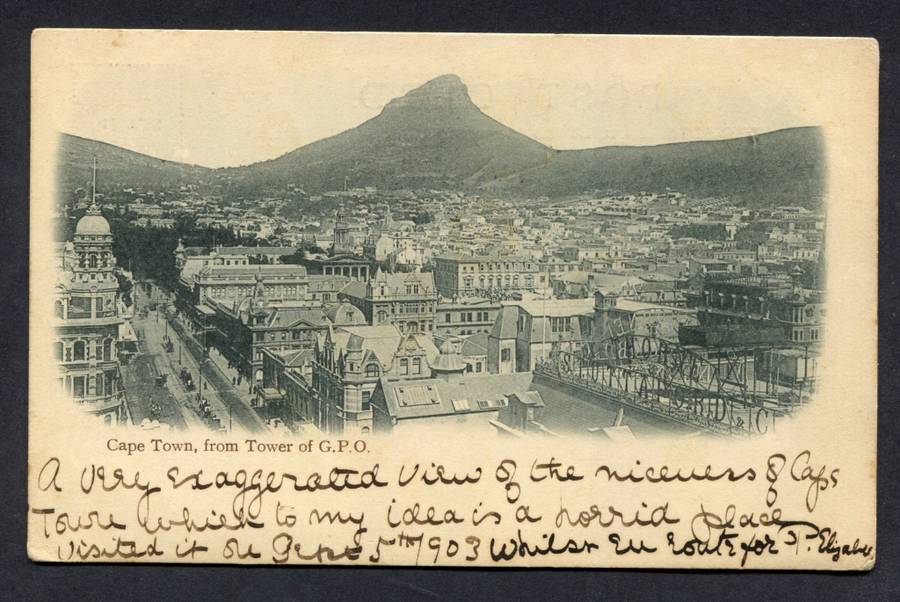 Cape Town, from Tower of G.P.O.
A very exaggerated view of the niceness of Cape
Town which to my idea is a horrid place
Visited it on Sept 5th 1903 Whilst En Route for P. Elizabeth